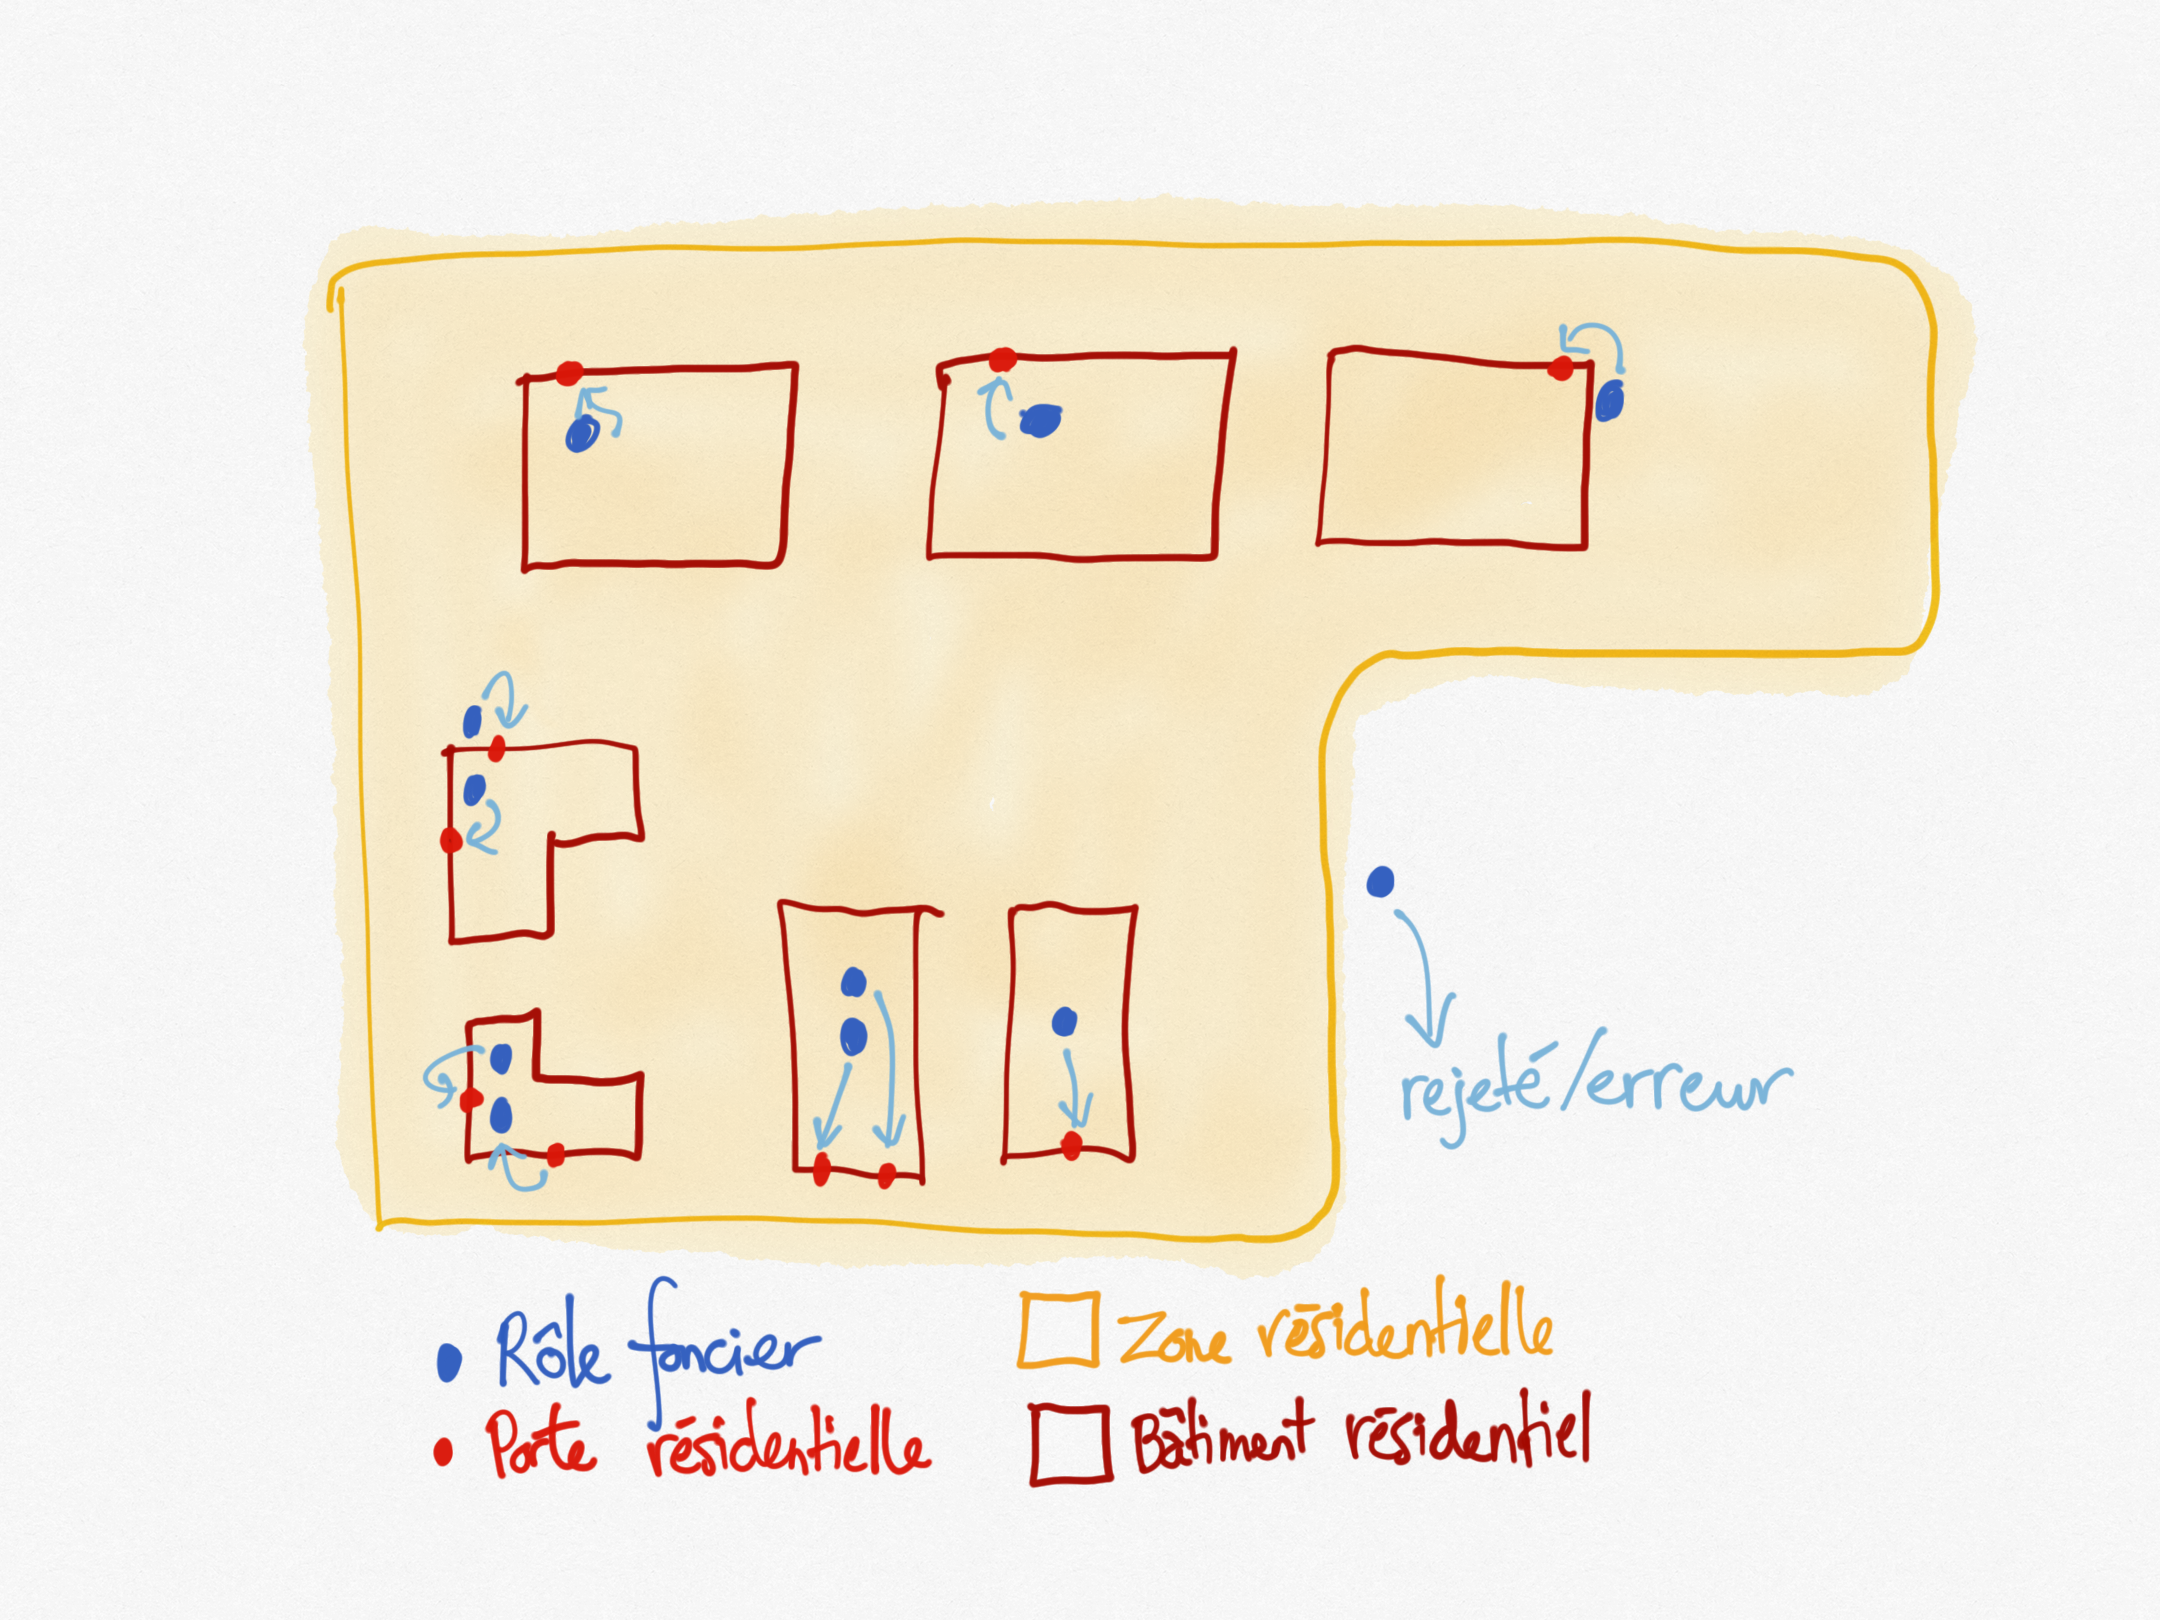 rejeté/erreur
Rôle foncier
Zone résidentielle
Porte résidentielle
Bâtiment résidentiel